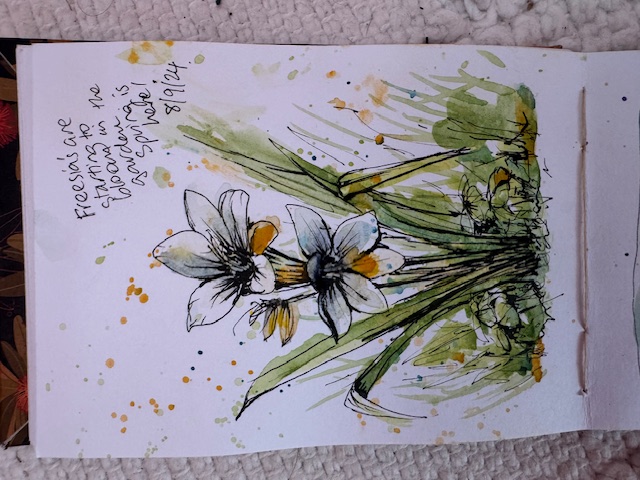 Freesia's are
starting to
bloom in the
garden
Spring is
here!
8/9/24